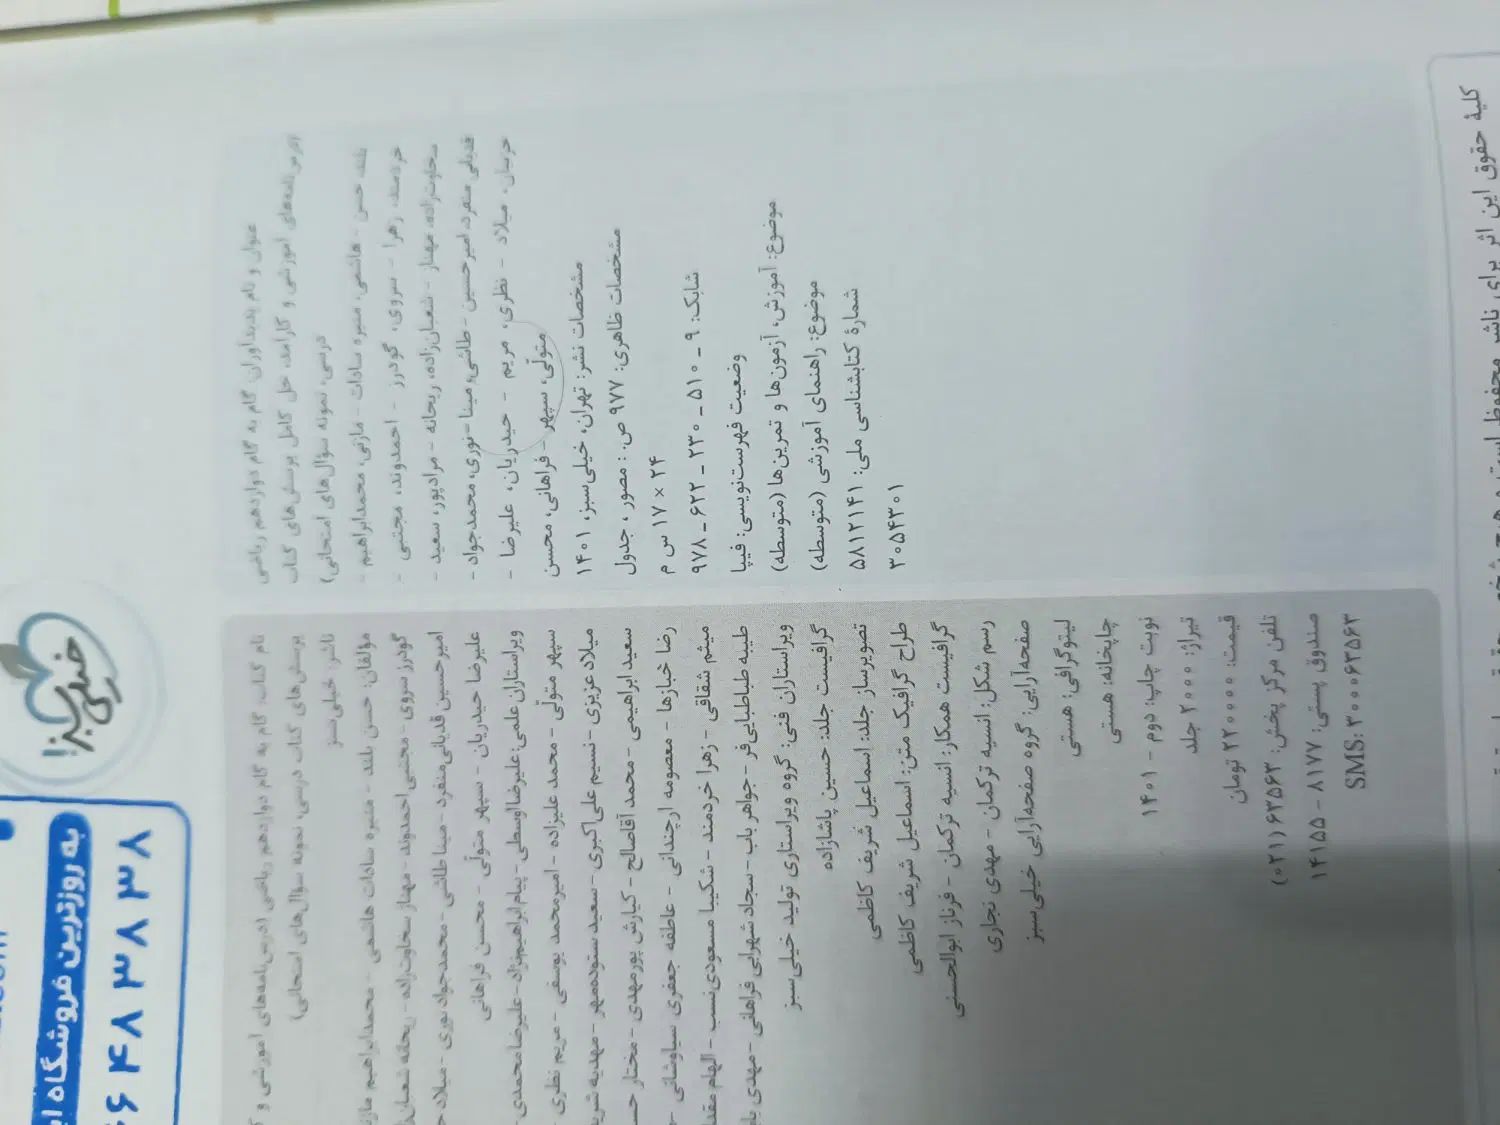 خیلی سبز!
به روزترین فروشگاه
۶۴۸۳۸۳۸
نام کتاب: گام به گام دوازدهم ریاضی (درس‌نامه‌های آموزشی و
پرسش‌های کتاب درسی، نمونه سؤال‌های امتحانی)
ناشر: خیلی‌سبز
مؤلفان: حسن بلند - منیره سادات هاشمی - محمدابراهیم مازنی
گودرز سروی - مجتبی احمدوند - مهناز سخاوت‌زاده - ریحانه شعبان‌زاده
امیرحسین قدیانی‌منفرد - مینا طائی - محمدجواد نوری - میلاد
علیرضا حیدریان - سپهر متولّی - محسن فراهانی
ویراستاران علمی: علیرضا اوسطی - پیام ابراهیم‌نژاد - علیرضا محمدی -
سپهر متولّی - محمد علیزاده - امیرمحمد یوسفی - مریم نظری
میلاد عزیزی - نسیم علی‌اکبری - سعید ستوده‌مهر - مهدیه
سعید ابراهیمی - محمد آقاصالح - کیارش پورمهدی - مختار
رضا خبازها - معصومه ارجندانی - عاطفه جعفری سیاوشانی -
میثم شقاقی - زهرا خردمند - شکیبا مسعودی‌نسب - الهام
طیبه طباطبایی‌فر - جواهر باب - سجاد شهرابی فراهانی - مهدی
ویراستاران فنی: گروه ویراستاری تولید خیلی‌سبز
گرافیست جلد: حسین پاشازاده
تصویرساز جلد: اسماعیل شریف کاظمی
طراح گرافیک متن: اسماعیل شریف کاظمی
گرافیست همکار: انسیه ترکمان - فرناز ابوالحسنی
رسم شکل: انسیه ترکمان - مهدی نجاری
صفحه‌آرایی: گروه صفحه‌آرایی خیلی‌سبز
لیتوگرافی: هستی
چاپخانه: هستی
نوبت چاپ: دوم - ۱۴۰۱
تیراژ: ۲۰۰۰ جلد
قیمت: ۲۲۰۰۰۰ تومان
تلفن مرکز پخش: ۶۳۵۶۳ (۰۲۱)
صندوق پستی: ۸۱۷۷ - ۱۴۱۵۵
SMS: ۳۰۰۰۶۳۵۶۳
عنوان و نام پدیدآوران گام به گام دوازدهم ریاضی
(درس‌نامه‌های آموزشی و کارآمد، حل کامل پرسش‌های کتاب
درسی، نمونه سؤال‌های امتحانی)
بلند، حسن - هاشمی، منیره سادات - مازنی، محمدابراهیم -
خردمند، زهرا - سروی، گودرز - احمدوند، مجتبی -
سخاوت‌زاده، مهناز - شعبان‌زاده، ریحانه - مرادپور، سعید -
قدیانی منفرد، امیرحسین - طائی، مینا - نوری، محمدجواد -
میلاد - نظری، مریم - حیدریان، علیرضا -
متولّی، سپهر - فراهانی، محسن
مشخصات نشر: تهران، خیلی‌سبز، ۱۴۰۱
مشخصات ظاهری: ۹۷۷ ص. : مصور ، جدول
۱۷ × ۲۴ س م
شابک: ۹ - ۵۱۰ - ۲۳۰ - ۶۲۲ - ۹۷۸
وضعیت فهرست‌نویسی: فیپا
موضوع: آموزش، آزمون‌ها و تمرین‌ها (متوسطه)
موضوع: راهنمای آموزشی (متوسطه)
شمارهٔ کتابشناسی ملی: ۵۸۱۲۱۴۱
۳۰۵۴۳۰۱
کلیهٔ حقوق این اثر برای ناشر محفوظ است و هیچ